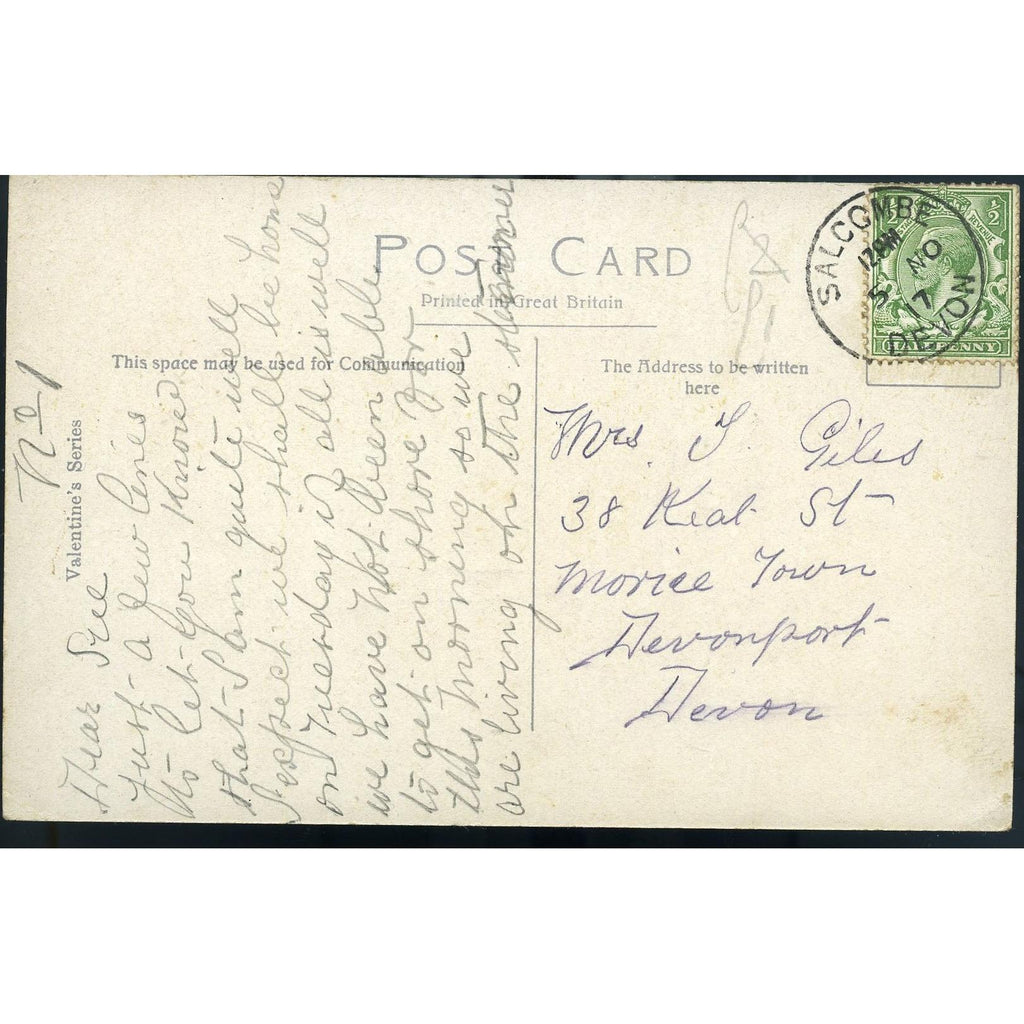 POST CARD
Printed in Great Britain
This space may be used for Communication
The Address to be written
here
Valentine's Series
SALCOMBE
12 PM
5 NO
17
DEVON
½ ½
HALFPENNY
No 1
Dear
Just a few lines
to let you know
that I am quite well
I expect we shall be home
on Tuesday if all is well
we have not been able
to get on shore for
this morning so we
are living on the steamer
Mrs J Giles
38 Keat St
Morice Town
Devonport
Devon